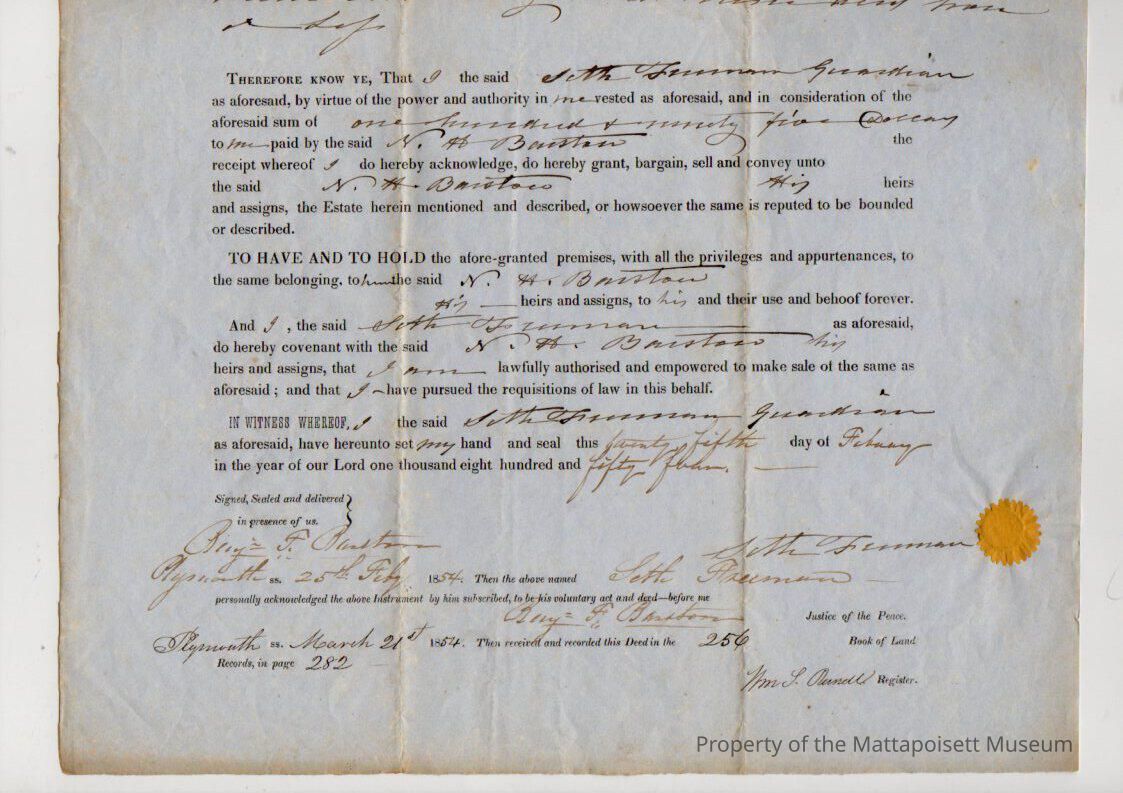 or less
THEREFORE KNOW YE, That I the said Seth Freeman Guardian
as aforesaid, by virtue of the power and authority in me vested as aforesaid, and in consideration of the
aforesaid sum of one hundred & ninety five Dollars
to me paid by the said N. H. Barstow the
receipt whereof I do hereby acknowledge, do hereby grant, bargain, sell and convey unto
the said N. H. Barstow His heirs
and assigns, the Estate herein mentioned and described, or howsoever the same is reputed to be bounded
or described.
TO HAVE AND TO HOLD the afore-granted premises, with all the privileges and appurtenances, to
the same belonging, to him the said N. H. Barstow
His heirs and assigns, to his and their use and behoof forever.
And I, the said Seth Freeman as aforesaid,
do hereby covenant with the said N. H. Barstow his
heirs and assigns, that I am lawfully authorised and empowered to make sale of the same as
aforesaid; and that I have pursued the requisitions of law in this behalf.
IN WITNESS WHEREOF, I the said Seth Freeman Guardian
as aforesaid, have hereunto set my hand and seal this twenty fifth day of Febuary
in the year of our Lord one thousand eight hundred and fifty four.
Signed, Sealed and delivered }
in presence of us.
Benj= F. Barstow Seth Freeman
Plymouth ss. 25th Feby 1854. Then the above named Seth Freeman
personally acknowledged the above Instrument by him subscribed, to be his voluntary act and deed—before me
Benj= F. Barstow Justice of the Peace.
Plymouth ss. March 21st 1854. Then received and recorded this Deed in the 256 Book of Land
Records, in page 282
Wm S. Russell Register.
Property of the Mattapoisett Museum